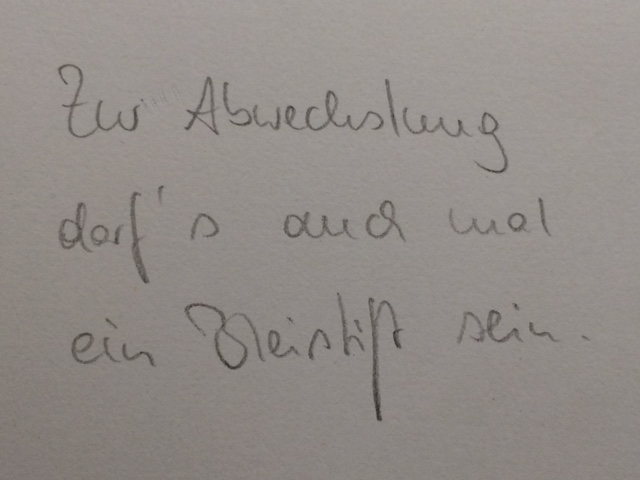 Zur Abwechslung
darf's auch mal
ein Bleistift sein.